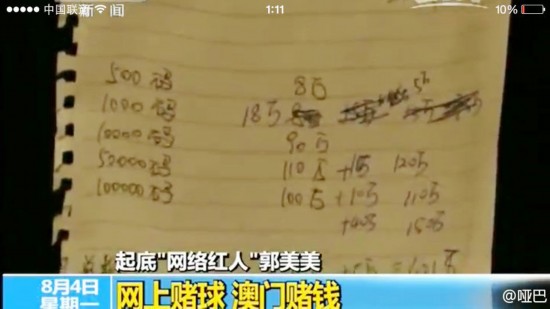 中国联通 1:11 10%
新闻
500码 8万
1000码 18万 5万
10000码 90万
50000码 110万 +10万 120万
100000码 100万 +10万 110万
+40万 150万
起底"网络红人"郭美美
8月4日 网上赌球 澳门赌钱
星期一
@哑巴